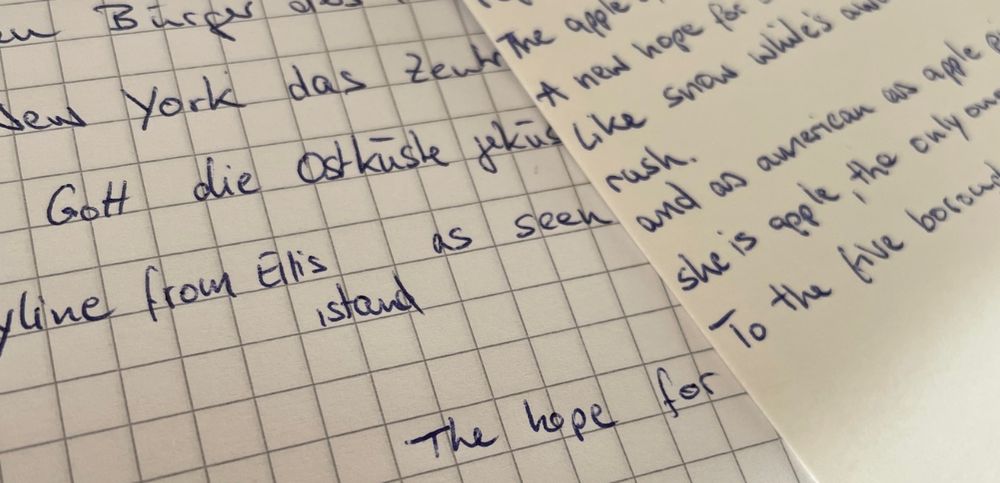 Bürger des
New York das
Gott die Ostküste geküs
yline from Ellis as seen
island
The hope for
The apple
A new hope for
Like snow while's awa
rush.
and as american as apple
she is apple, the only on
To the five boroug